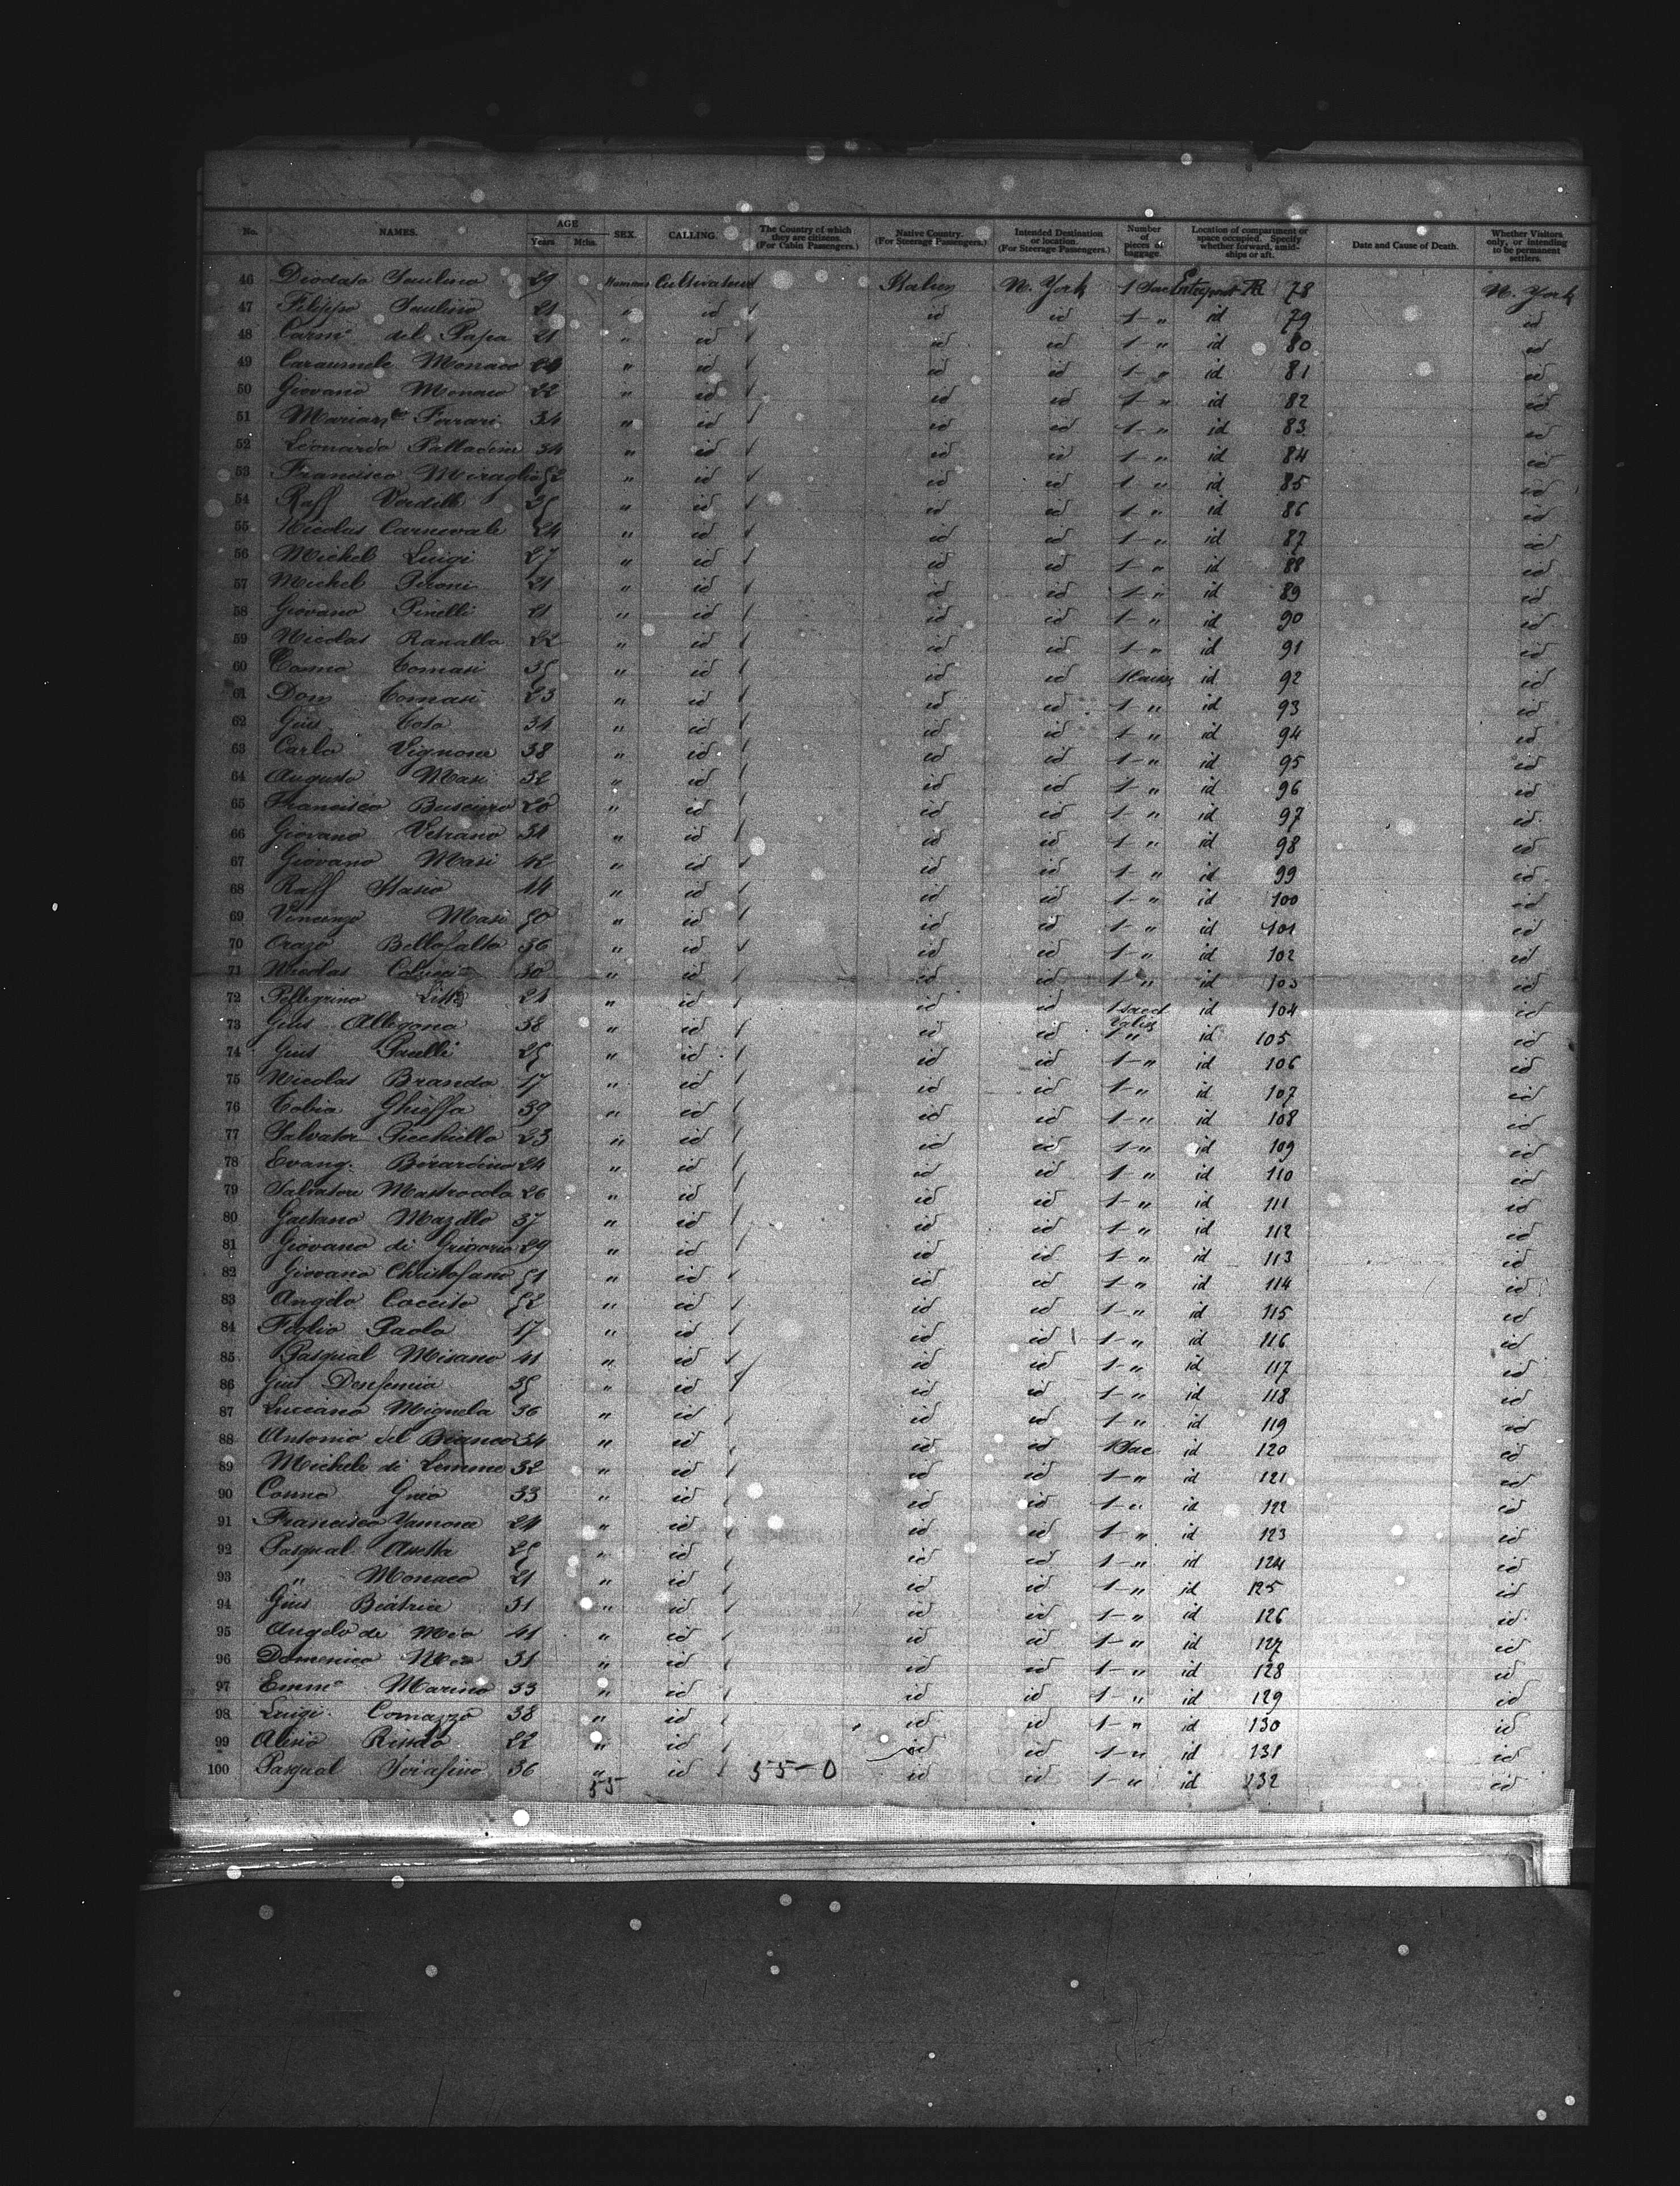 No. NAMES. AGE Years. Mths. SEX. CALLING. The Country of which they are citizens. (For Cabin Passengers.) Native Country. (For Steerage Passengers.) Intended Destination or location. (For Steerage Passengers.) Number of pieces of baggage. Location of compartment or space occupied. Specify whether forward, amidships or aft. Date and Cause of Death. Whether Visitors only, or intending to be permanent settlers.
46 Diodato 29 N. York 1 78 N. York
47 Filippo 21 " id id id 1 " id 79 id
48 del Papa 21 " id id id 1 " id 80 id
49 Monaco 24 " id id id 1 " id 81 id
50 Giovano Monaco 22 " id id id 1 " id 82 id
51 Ferrari 34 " id id id 1 " id 83 id
52 Leonardo Palladino 34 " id id id 1 " id 84 id
53 Francisco Miraglio 52 " id id id 1 " id 85 id
54 Raff 35 " id id id 1 " id 86 id
55 Nicolas Carnevale 24 " id id id 1 " id 87 id
56 Michele Luigi 27 " id id id 1 " id 88 id
57 Michele Peroni 21 " id id id 1 " id 89 id
58 Giovano Pinelli 21 " id id id 1 " id 90 id
59 Nicolas Ranallo 22 " id id id 1 " id 91 id
60 Tomasi 35 " id id id 1 id 92 id
61 Dom Tomasi 23 " id id id 1 " id 93 id
62 Gius 34 " id id id 1 " id 94 id
63 Carlo Vignone 38 " id id id 1 " id 95 id
64 Augusto Masi 32 " id id id 1 " id 96 id
65 Francisco 20 " id id id 1 " id 97 id
66 Giovano Vetrano 34 " id id id 1 " id 98 id
67 Giovano Masi 42 " id id id 1 " id 99 id
68 Raff Stasio 44 " id id id 1 " id 100 id
69 Vincenzo Masi 50 " id id id 1 " id 101 id
70 Orazo Bellofatto 36 " id id id 1 " id 102 id
71 Nicolas Colucci 30 " id id id 1 " id 103 id
72 Pellegrino 21 " id id id 1 id 104 id
73 Gius Allegona 38 " id id id 1 " id 105 id
74 Gius 25 " id id id 1 " id 106 id
75 Nicolas Branda 17 " id id id 1 " id 107 id
76 Tobia Ghieffa 39 " id id id 1 " id 108 id
77 Salvator Picchiello 23 " id id id 1 " id 109 id
78 Evang. Birardino 24 " id id id 1 " id 110 id
79 Salvatore Mastrocola 26 " id id id 1 " id 111 id
80 Gaetano Mazillo 37 " id id id 1 " id 112 id
81 Giovano di Grigorio 29 " id id id 1 " id 113 id
82 Giovano Christofano 51 " id id id 1 " id 114 id
83 Angelo Coccito 52 " id id id 1 " id 115 id
84 Figlio Paolo 17 " id id id 1 " id 116 id
85 Pasqual Misano 41 " id id id 1 " id 117 id
86 Gius 35 " id id id 1 " id 118 id
87 Luccano Mignela 36 " id id id 1 " id 119 id
88 Antonio del Bianco 34 " id id id 1 Sac id 120 id
89 Michele di Lemme 32 " id id id 1 " id 121 id
90 33 " id id id 1 " id 122 id
91 Francisco Yamone 24 " id id id 1 " id 123 id
92 Pasqual 25 " id id id 1 " id 124 id
93 " Monaco 21 " id id id 1 " id 125 id
94 Gius Beatrice 31 " id id id 1 " id 126 id
95 Angelo de Meo 41 " id id id 1 " id 127 id
96 Domenico 31 " id id id 1 " id 128 id
97 Marino 33 " id id id 1 " id 129 id
98 Luigi Comazzo 38 " id id id 1 " id 130 id
99 22 " id id id 1 " id 131 id
100 Pasqual 36 " id 55-0 id id 1 " id 132 id
55